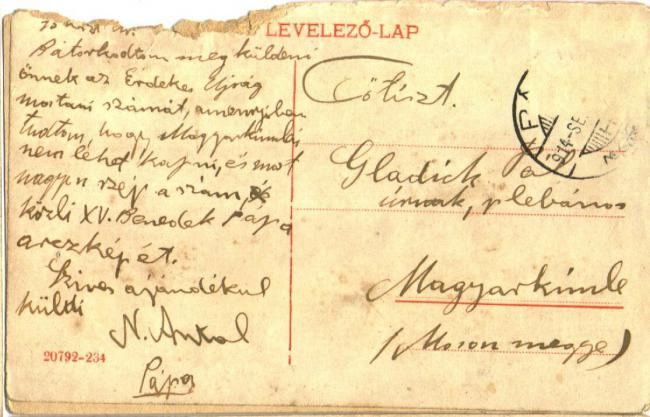 LEVELEZŐ-LAP
Bátorkodtom megküldeni
önnek az Érdekes Ujság
mostani számát, amennyiben
tudom, hogy Magyarkimlén
nem lehet kapni, és most
nagyon szép a szám,
közli XV. Benedek Pápa
arczképét.
Szives ajándékul
küldi
N. Antal
Pápa
20792-234
Főtiszt.
Gladich
úrnak, plebános
Magyarkimle
(Moson megye)
PÁPA
914 SE